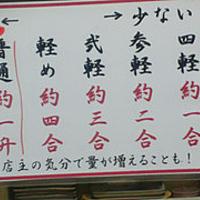 ← → 少ない
四軽 約一合
参軽 約二合
弐軽 約三合
軽め 約四合
普通 約一升
店主の気分で量が増えることも!